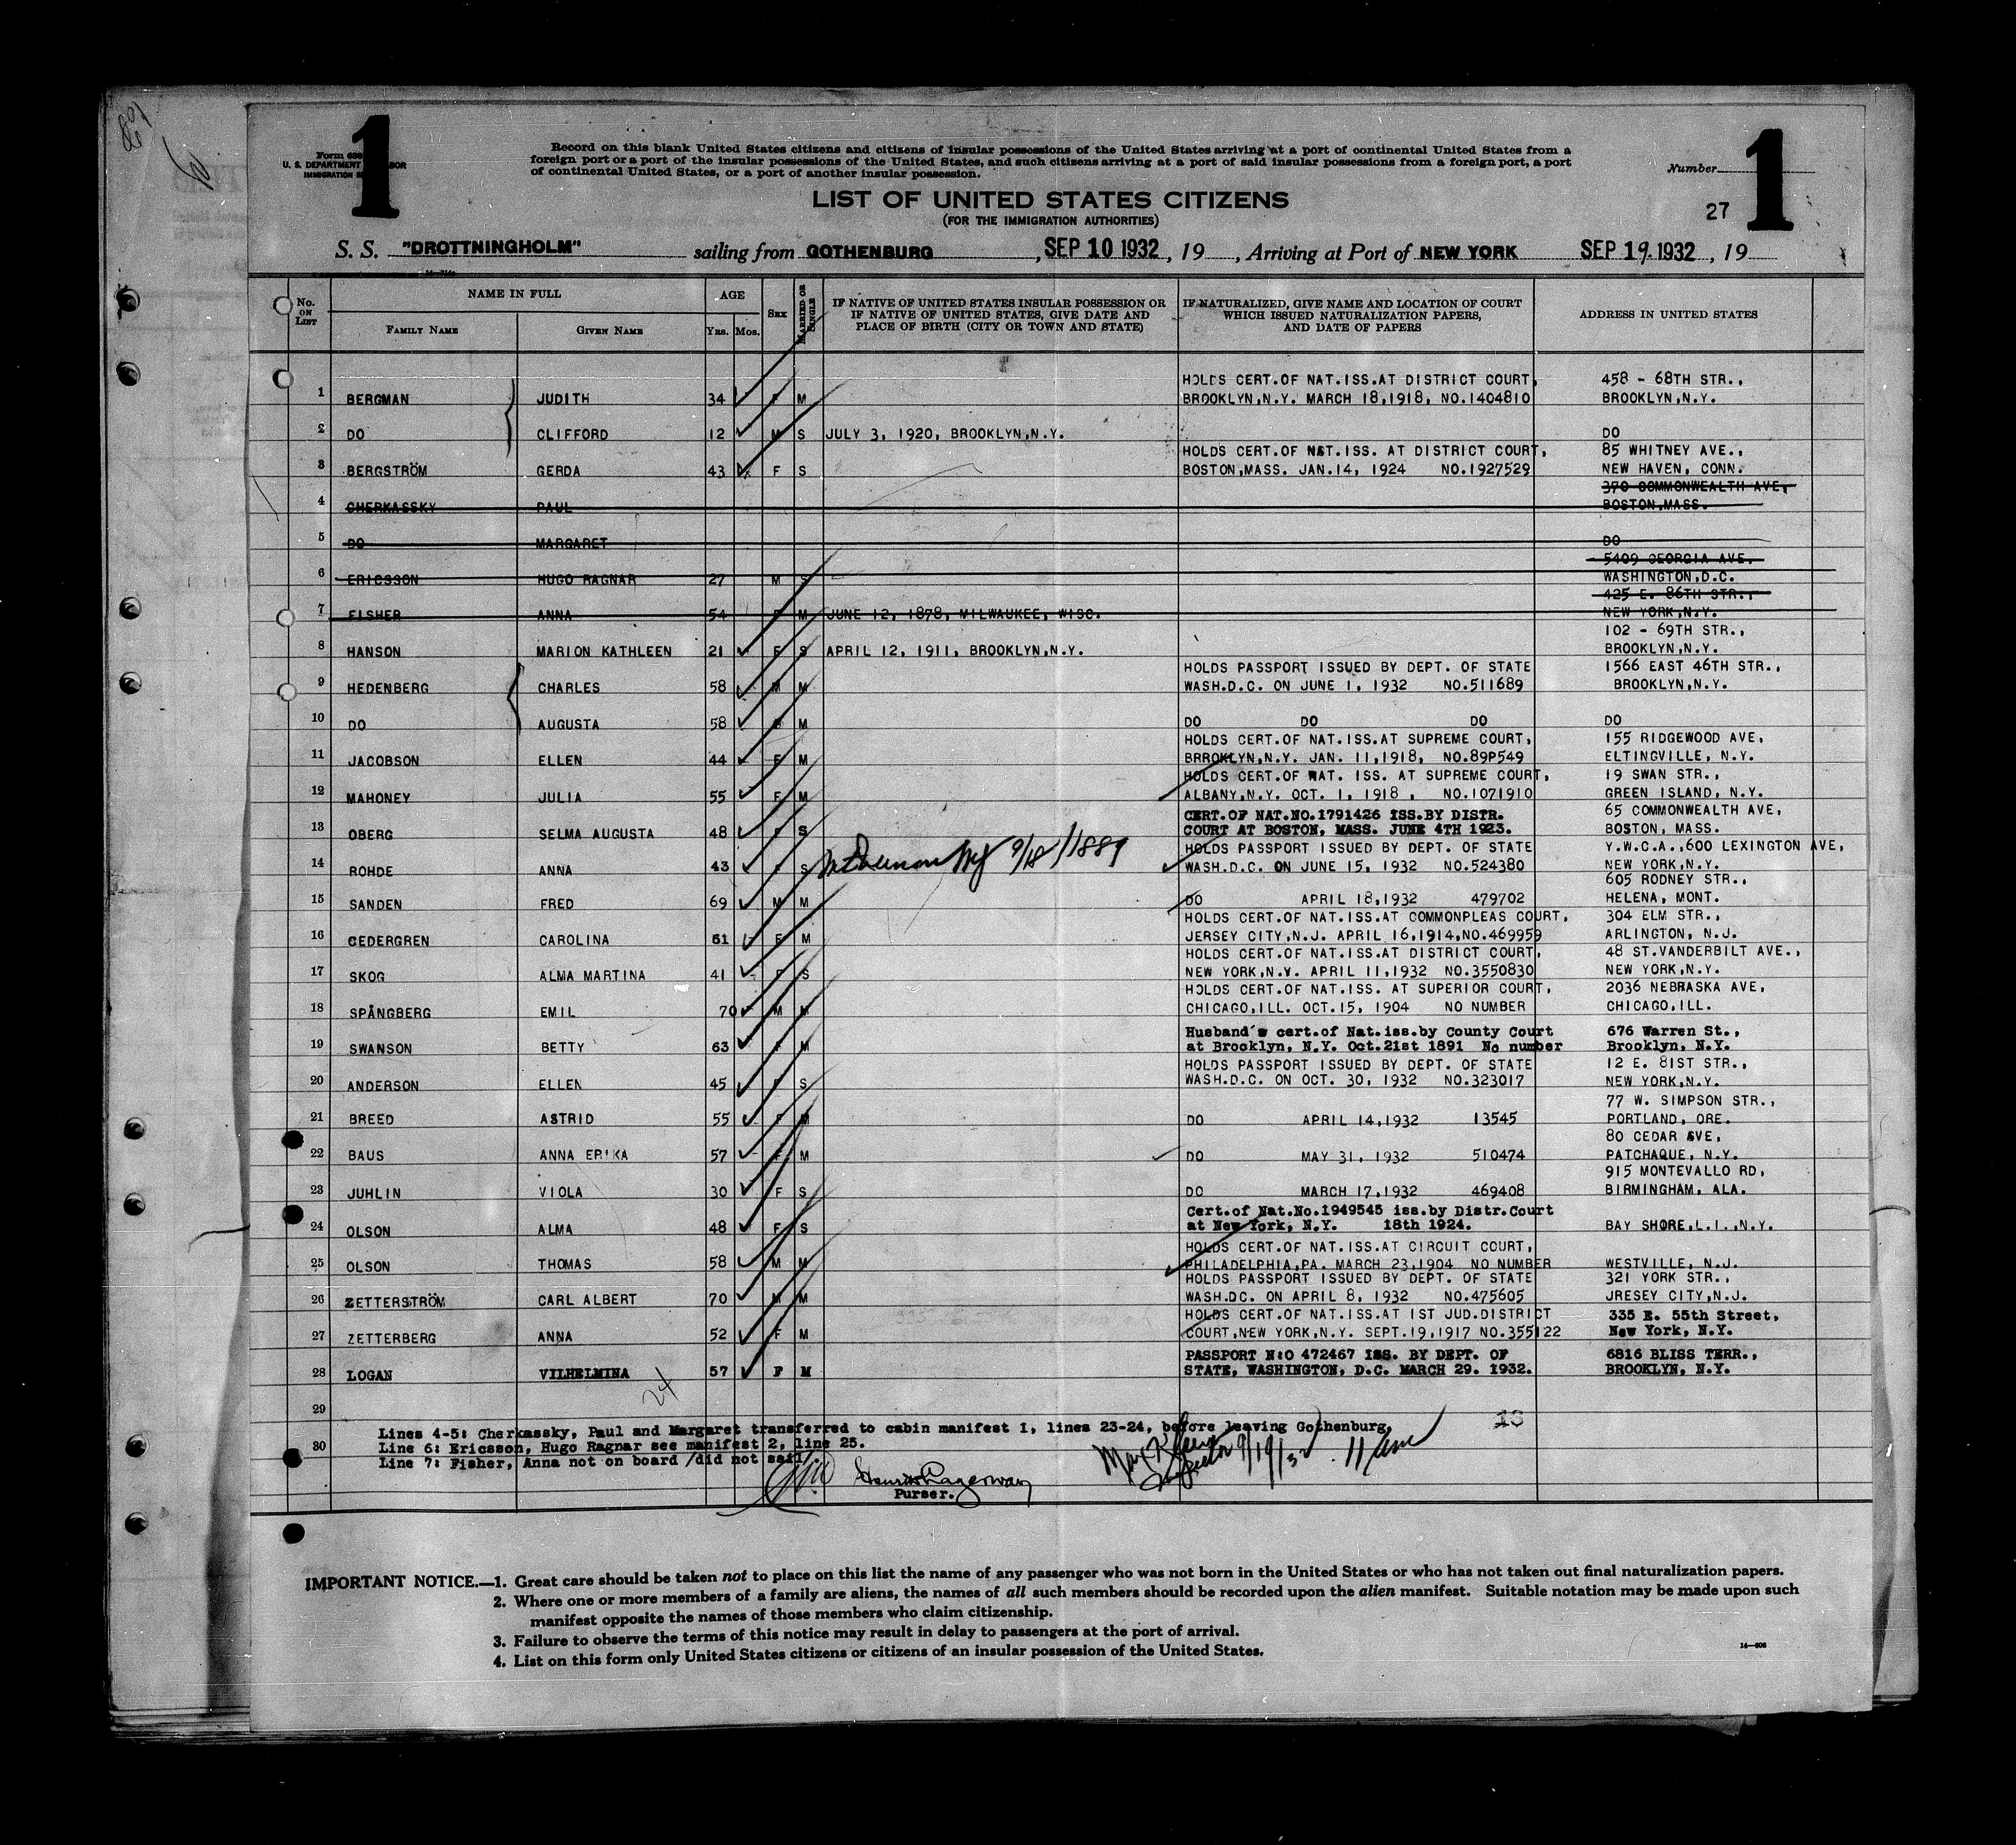 1
1
Form 630
U. S. DEPARTMENT
IMMIGRATION
Record on this blank United States citizens and citizens of insular possessions of the United States arriving at a port of continental United States from a
foreign port or a port of the insular possessions of the United States, and such citizens arriving at a port of said insular possessions from a foreign port, a port
of continental United States, or a port of another insular possession.
Number
LIST OF UNITED STATES CITIZENS
(FOR THE IMMIGRATION AUTHORITIES)
27
S. S. "DROTTNINGHOLM" sailing from GOTHENBURG, SEP 10 1932, 19, Arriving at Port of NEW YORK SEP 19. 1932, 19
No. ON LIST
NAME IN FULL
FAMILY NAME GIVEN NAME
AGE
YRS. MOS.
SEX
MARRIED OR SINGLE
IF NATIVE OF UNITED STATES INSULAR POSSESSION OR
IF NATIVE OF UNITED STATES, GIVE DATE AND
PLACE OF BIRTH (CITY OR TOWN AND STATE)
IF NATURALIZED, GIVE NAME AND LOCATION OF COURT
WHICH ISSUED NATURALIZATION PAPERS,
AND DATE OF PAPERS
ADDRESS IN UNITED STATES
HOLDS CERT.OF NAT.ISS.AT DISTRICT COURT, 458 - 68TH STR.,
1 BERGMAN JUDITH 34 F M BROOKLYN,N.Y. MARCH 18,1918, NO.1404810 BROOKLYN,N.Y.
2 DO CLIFFORD 12 M S JULY 3, 1920, BROOKLYN,N.Y. DO
HOLDS CERT.OF NAT.ISS. AT DISTRICT COURT, 85 WHITNEY AVE.,
3 BERGSTRÖM GERDA 43 F S BOSTON,MASS. JAN.14, 1924 NO.1927529 NEW HAVEN, CONN.
370 COMMONWEALTH AVE,
4 CHERKASSKY PAUL BOSTON,MASS.
5 DO MARGARET DO
5409 GEORGIA AVE.
6 ERICSSON HUGO RAGNAR 27 M S WASHINGTON,D.C.
425 E. 86TH STR.,
7 FISHER ANNA 54 F M JUNE 12, 1878, MILWAUKEE, WISC. NEW YORK,N.Y.
102 - 69TH STR.,
8 HANSON MARION KATHLEEN 21 F S APRIL 12, 1911, BROOKLYN,N.Y. BROOKLYN,N.Y.
HOLDS PASSPORT ISSUED BY DEPT. OF STATE 1566 EAST 46TH STR.,
9 HEDENBERG CHARLES 58 M M WASH.D.C. ON JUNE 1, 1932 NO.511689 BROOKLYN,N.Y.
10 DO AUGUSTA 58 F M DO DO DO DO
HOLDS CERT.OF NAT.ISS.AT SUPREME COURT, 155 RIDGEWOOD AVE,
11 JACOBSON ELLEN 44 F M BRROKLYN,N.Y. JAN. 11,1918, NO.89P549 ELTINGVILLE, N.Y.
HOLDS CERT.OF NAT. ISS. AT SUPREME COURT, 19 SWAN STR.,
12 MAHONEY JULIA 55 F M ALBANY,N.Y. OCT. 1, 1918 , NO.1071910 GREEN ISLAND, N.Y.
CERT.OF NAT.NO.1791426 ISS.BY DISTR. 65 COMMONWEALTH AVE,
13 OBERG SELMA AUGUSTA 48 F S COURT AT BOSTON, MASS. JUNE 4TH 1923. BOSTON, MASS.
HOLDS PASSPORT ISSUED BY DEPT. OF STATE Y.W.C.A.,600 LEXINGTON AVE,
14 ROHDE ANNA 43 F S Mt Vernon NY 9/18/1889 WASH.D.C. ON JUNE 15, 1932 NO.524380 NEW YORK,N.Y.
605 RODNEY STR.,
15 SANDEN FRED 69 M M DO APRIL 18,1932 479702 HELENA, MONT.
HOLDS CERT.OF NAT.ISS.AT COMMONPLEAS COURT, 304 ELM STR.,
16 CEDERGREN CAROLINA 61 F M JERSEY CITY,N.J. APRIL 16,1914,NO.469959 ARLINGTON, N.J.
HOLDS CERT.OF NAT.ISS.AT DISTRICT COURT, 48 ST.VANDERBILT AVE.,
17 SKOG ALMA MARTINA 41 F S NEW YORK,N.Y. APRIL 11,1932 NO.3550830 NEW YORK,N.Y.
HOLDS CERT.OF NAT.ISS. AT SUPERIOR COURT, 2036 NEBRASKA AVE,
18 SPÅNGBERG EMIL 70 M M CHICAGO,ILL. OCT.15, 1904 NO NUMBER CHICAGO,ILL.
Husband's cert.of Nat.iss.by County Court 676 Warren St.,
19 SWANSON BETTY 63 F M at Brooklyn, N.Y. Oct.21st 1891 No number Brooklyn, N.Y.
HOLDS PASSPORT ISSUED BY DEPT. OF STATE 12 E. 81ST STR.,
20 ANDERSON ELLEN 45 F S WASH.D.C. ON OCT. 30, 1932 NO.323017 NEW YORK,N.Y.
77 W. SIMPSON STR.,
21 BREED ASTRID 55 F M DO APRIL 14,1932 13545 PORTLAND, ORE.
80 CEDAR AVE,
22 BAUS ANNA ERIKA 57 F M DO MAY 31, 1932 510474 PATCHAQUE, N.Y.
915 MONTEVALLO RD,
23 JUHLIN VIOLA 30 F S DO MARCH 17,1932 469408 BIRMINGHAM, ALA.
Cert.of Nat.No.1949545 iss.by Distr.Court
24 OLSON ALMA 48 F S at New York, N.Y. 18th 1924. BAY SHORE,L.I.,N.Y.
HOLDS CERT.OF NAT.ISS.AT CIRCUIT COURT,
25 OLSON THOMAS 58 M M PHILADELPHIA,PA. MARCH 23,1904 NO NUMBER WESTVILLE, N.J.
HOLDS PASSPORT ISSUED BY DEPT. OF STATE 321 YORK STR.,
26 ZETTERSTRÖM CARL ALBERT 70 M M WASH.DC. ON APRIL 8, 1932 NO.475605 JRESEY CITY,N.J.
HOLDS CERT.OF NAT.ISS.AT 1ST JUD.DISTRICT 335 E. 55th Street,
27 ZETTERBERG ANNA 52 F M COURT,NEW YORK,N.Y. SEPT.19,1917 NO.355122 New York, N.Y.
PASSPORT N:O 472467 ISS. BY DEPT. OF 6816 BLISS TERR.,
28 LOGAN VILHELMINA 57 F M STATE, WASHINGTON, D.C. MARCH 29. 1932. BROOKLYN, N.Y.
24
29
Lines 4-5: Cherkassky, Paul and Margaret transferred to cabin manifest 1, lines 23-24, before leaving Gothenburg.
30 Line 6: Ericsson, Hugo Ragnar see manifest 2, line 25.
Line 7: Fisher, Anna not on board /did not sail/.
Inspector 9/19/32
Purser.
IMPORTANT NOTICE.—1. Great care should be taken not to place on this list the name of any passenger who was not born in the United States or who has not taken out final naturalization papers.
2. Where one or more members of a family are aliens, the names of all such members should be recorded upon the alien manifest. Suitable notation may be made upon such
manifest opposite the names of those members who claim citizenship.
3. Failure to observe the terms of this notice may result in delay to passengers at the port of arrival.
4. List on this form only United States citizens or citizens of an insular possession of the United States.
14—606